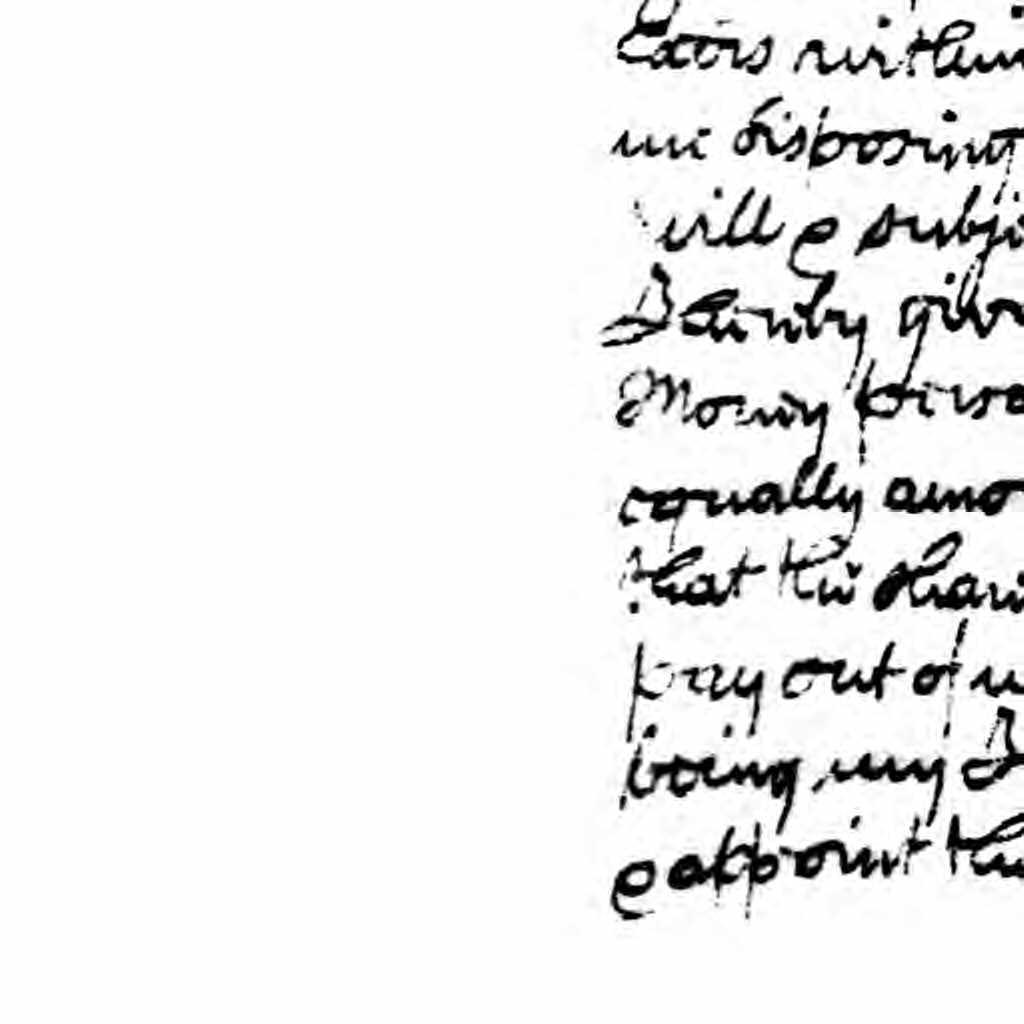 Exors within
me disposing
will & subje
I hereby give
Money perso
equally amo
that the share
pay out of m
being my
& appoint the